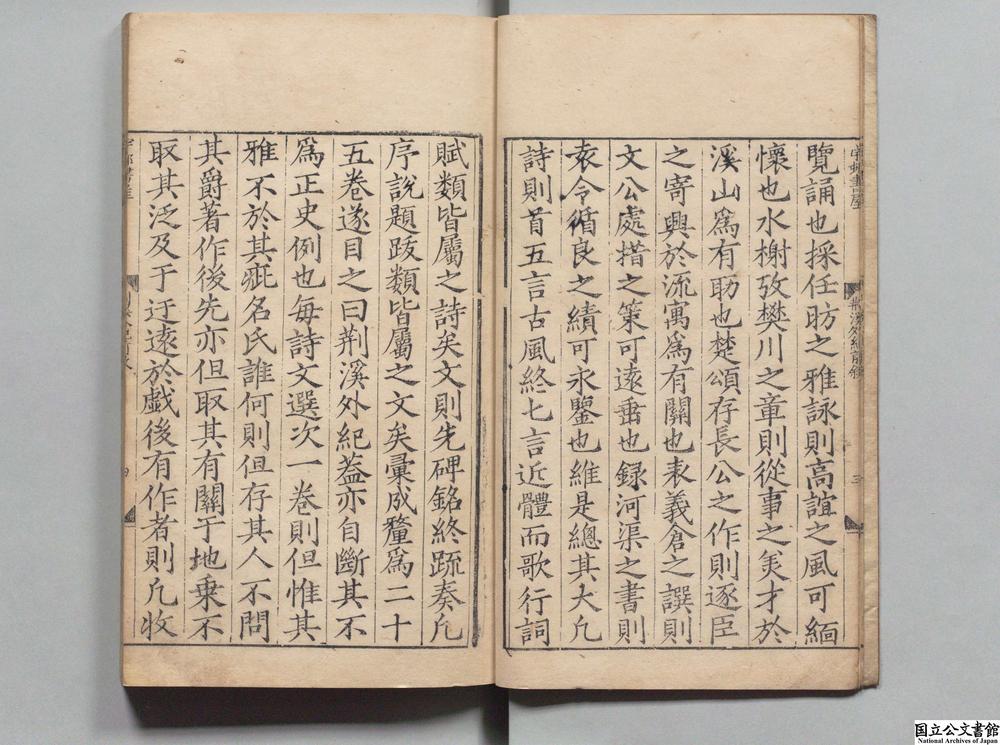 覽誦也採任昉之雅詠則高誼之風可緬
懷也水榭攷樊川之章則從事之羙才於
溪山爲有助也楚頌存長公之作則逐臣
之寄興於流寓爲有關也表義倉之譔則
文公處措之策可遠垂也録河渠之書則
袁令循良之績可永鑒也維是總其大凢
詩則首五言古風終七言近體而歌行詞
賦類皆屬之詩矣文則先碑銘終疏奏凢
序說題跋類皆屬之文矣彚成釐爲二十
五卷遂目之曰荆溪外紀葢亦自斷其不
爲正史例也每詩文選次一卷則但惟其
雅不於其疵名氏誰何則但存其人不問
其爵著作後先亦但取其有關于地乗不
取其泛及于迂遠於戱後有作者則凢收
荆溪外紀前叙
三
四
国立公文書館
National Archives of Japan